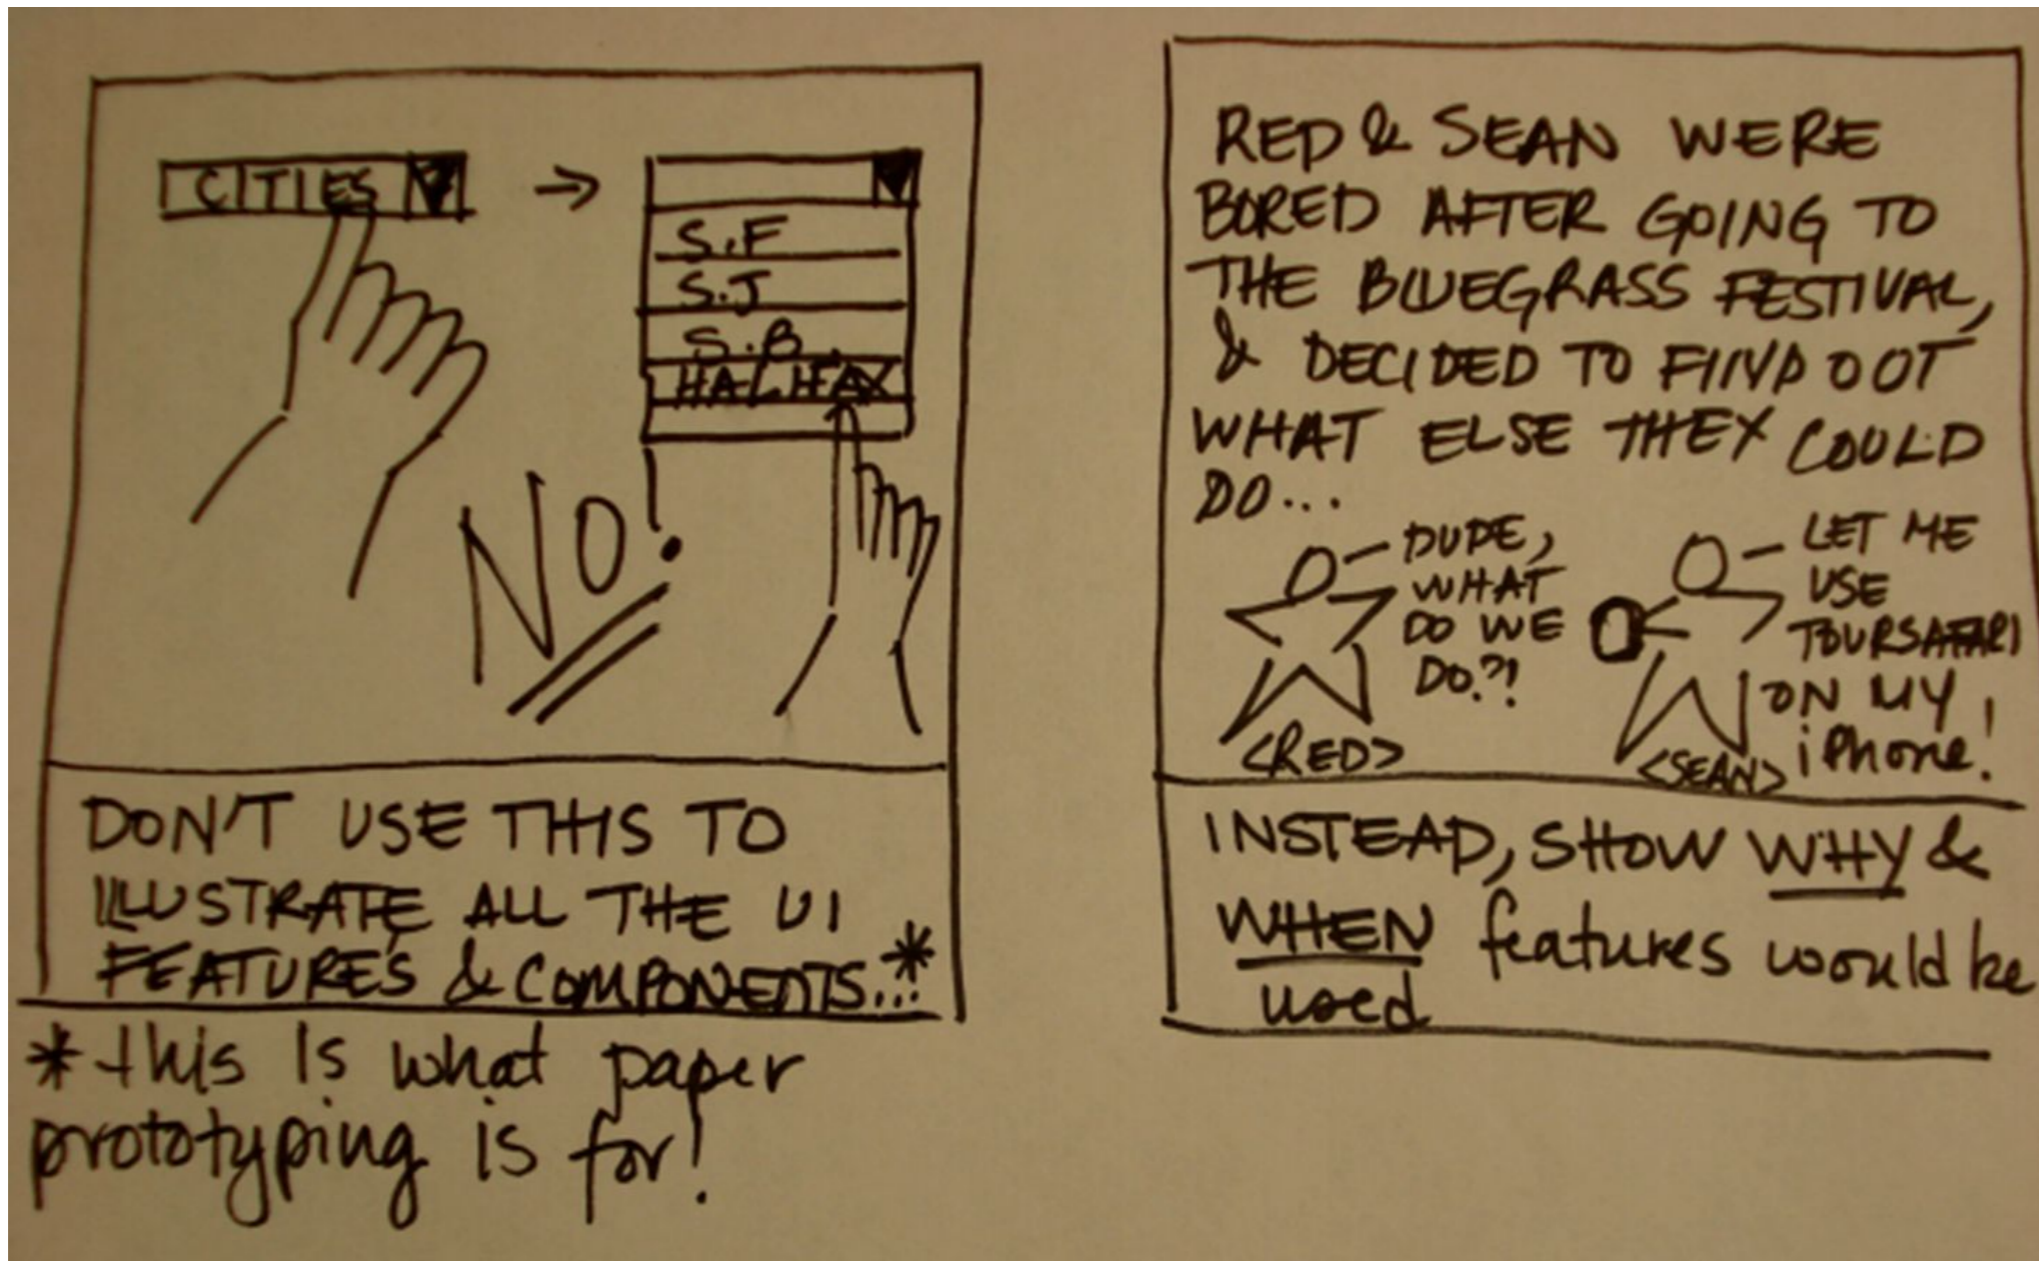 CITIES
→
S.F
S.J
S.B
HALIFAX
NO!
DON'T USE THIS TO
ILLUSTRATE ALL THE UI
FEATURES & COMPONENTS...*
*this is what paper
prototyping is for!
RED & SEAN WERE
BORED AFTER GOING TO
THE BLUEGRASS FESTIVAL,
& DECIDED TO FIND OUT
WHAT ELSE THEY COULD
DO...
DUDE,
WHAT
DO WE
DO?!
<RED>
LET ME
USE
TOURSAFARI
ON MY
iPhone!
<SEAN>
INSTEAD, SHOW WHY &
WHEN features would be
used